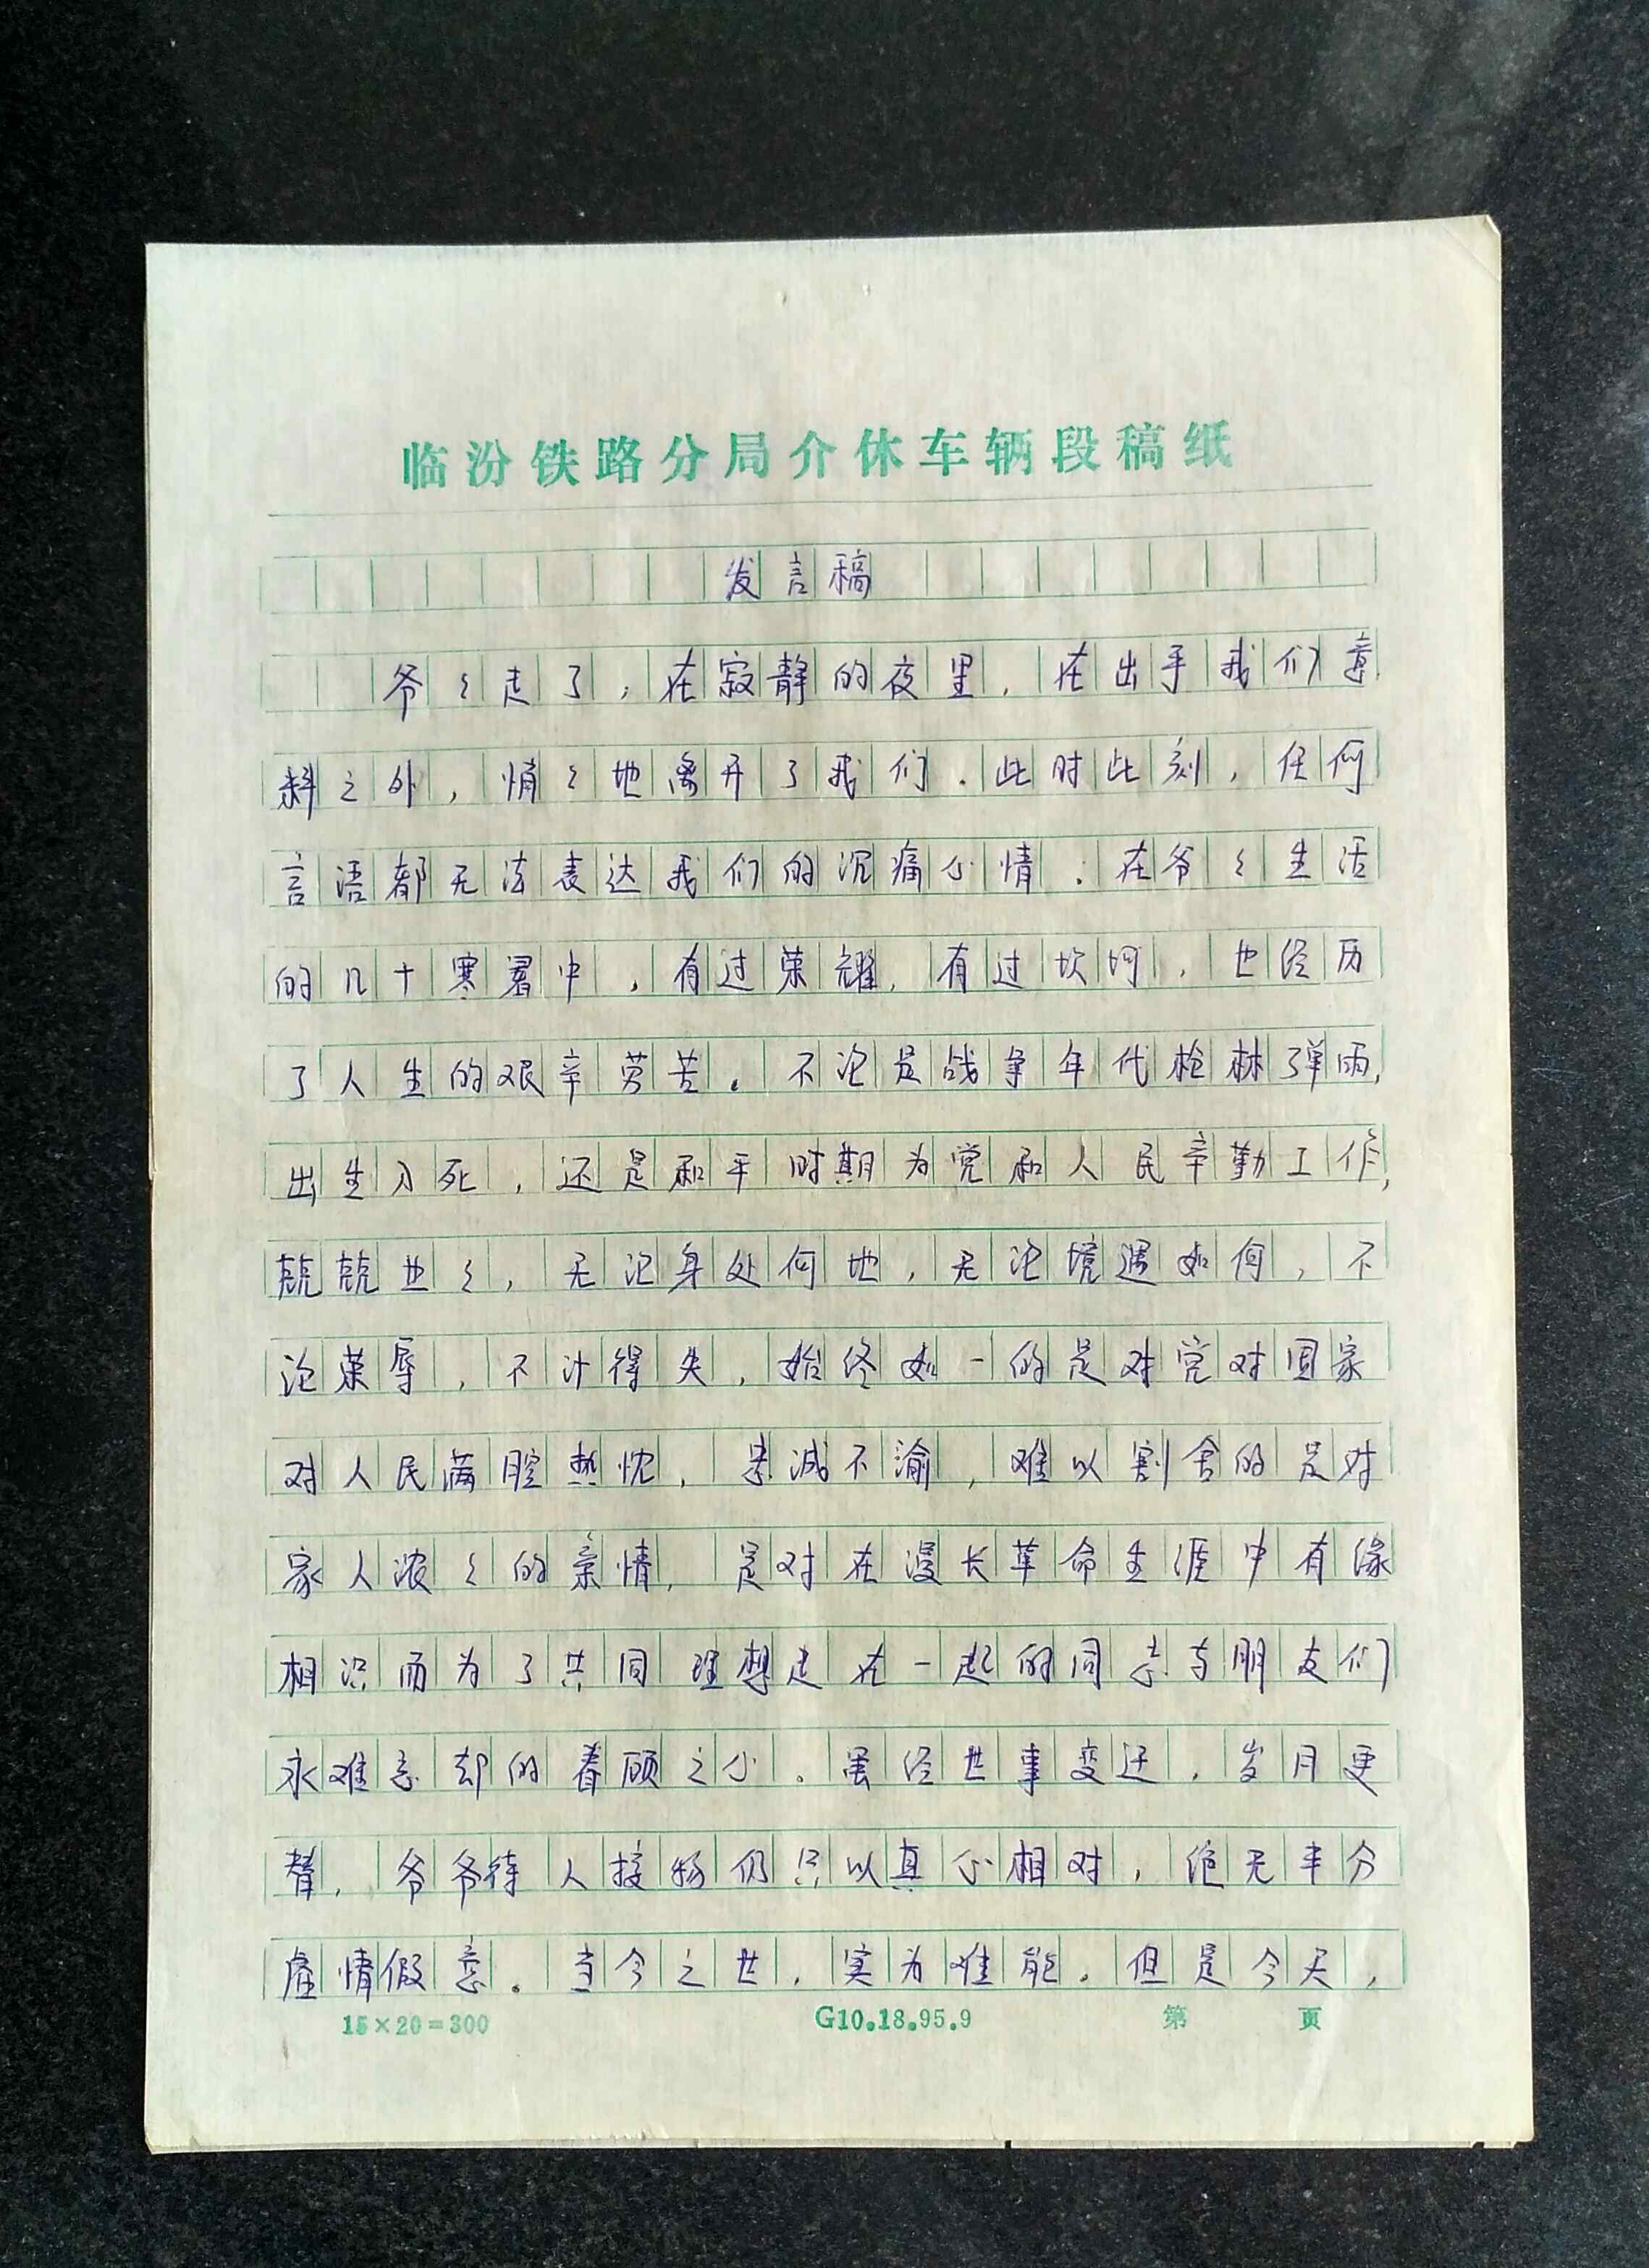 临汾铁路分局介休车辆段稿纸
发言稿
爷々走了，在寂静的夜里，在出乎我们意
料之外，悄々地离开了我们。此时此刻，任何
言语都无法表达我们的沉痛心情。在爷々生活
的几十寒暑中，有过荣耀，有过坎坷，也经历
了人生的艰辛劳苦。不论是战争年代枪林弹雨，
出生入死，还是和平时期为党和人民辛勤工作，
兢兢业々，无论身处何地，无论境遇如何，不
论荣辱，不计得失，始终如一的是对党对国家
对人民满腔热忱，忠诚不渝，难以割舍的是对
家人浓々的亲情，是对在漫长革命生涯中有缘
相识而为了共同理想走在一起的同志与朋友们
永难忘却的眷顾之心。虽经世事变迁，岁月更
替，爷爷待人接物仍只以真心相对，绝无半分
虚情假意。当今之世，实为难能。但是今天，
15×20=300 G10.18.95.9 第 页